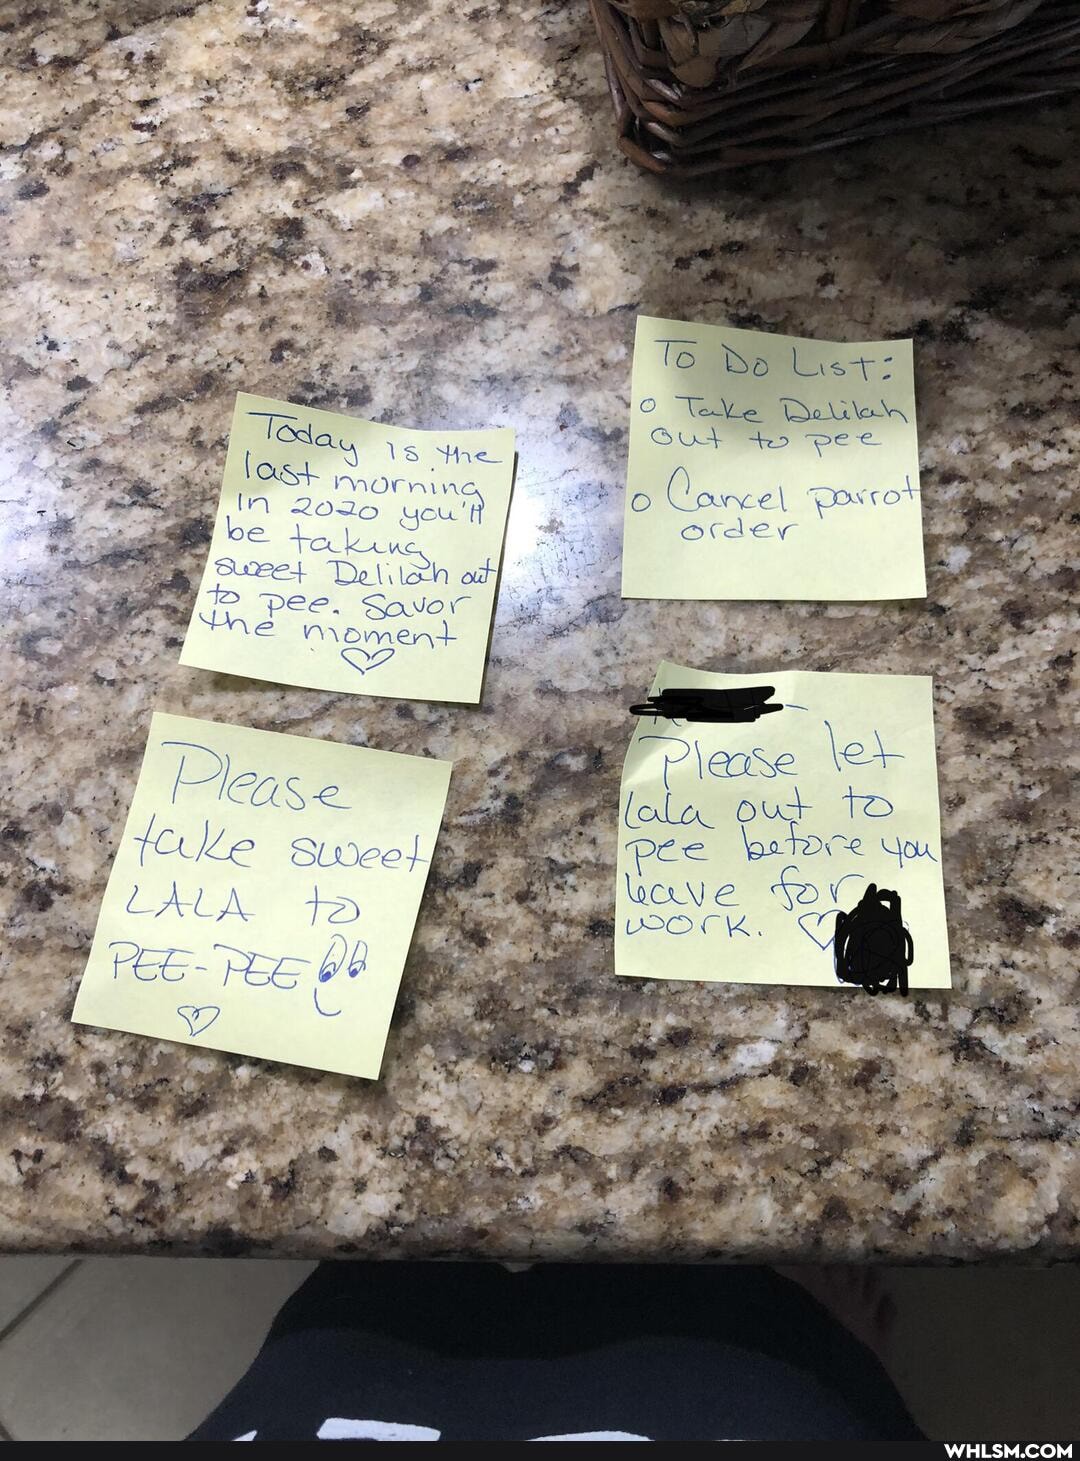 Today is the
last morning
in 2020 you'll
be taking
sweet Delilah out
to pee. Savor
the moment
TO DO LIST:
Take Delilah
out to pee
Cancel parrot
order
Please
take sweet
LALA to
PEE-PEE
Please let
lala out to
pee before you
leave for
work.
WHLSM.COM